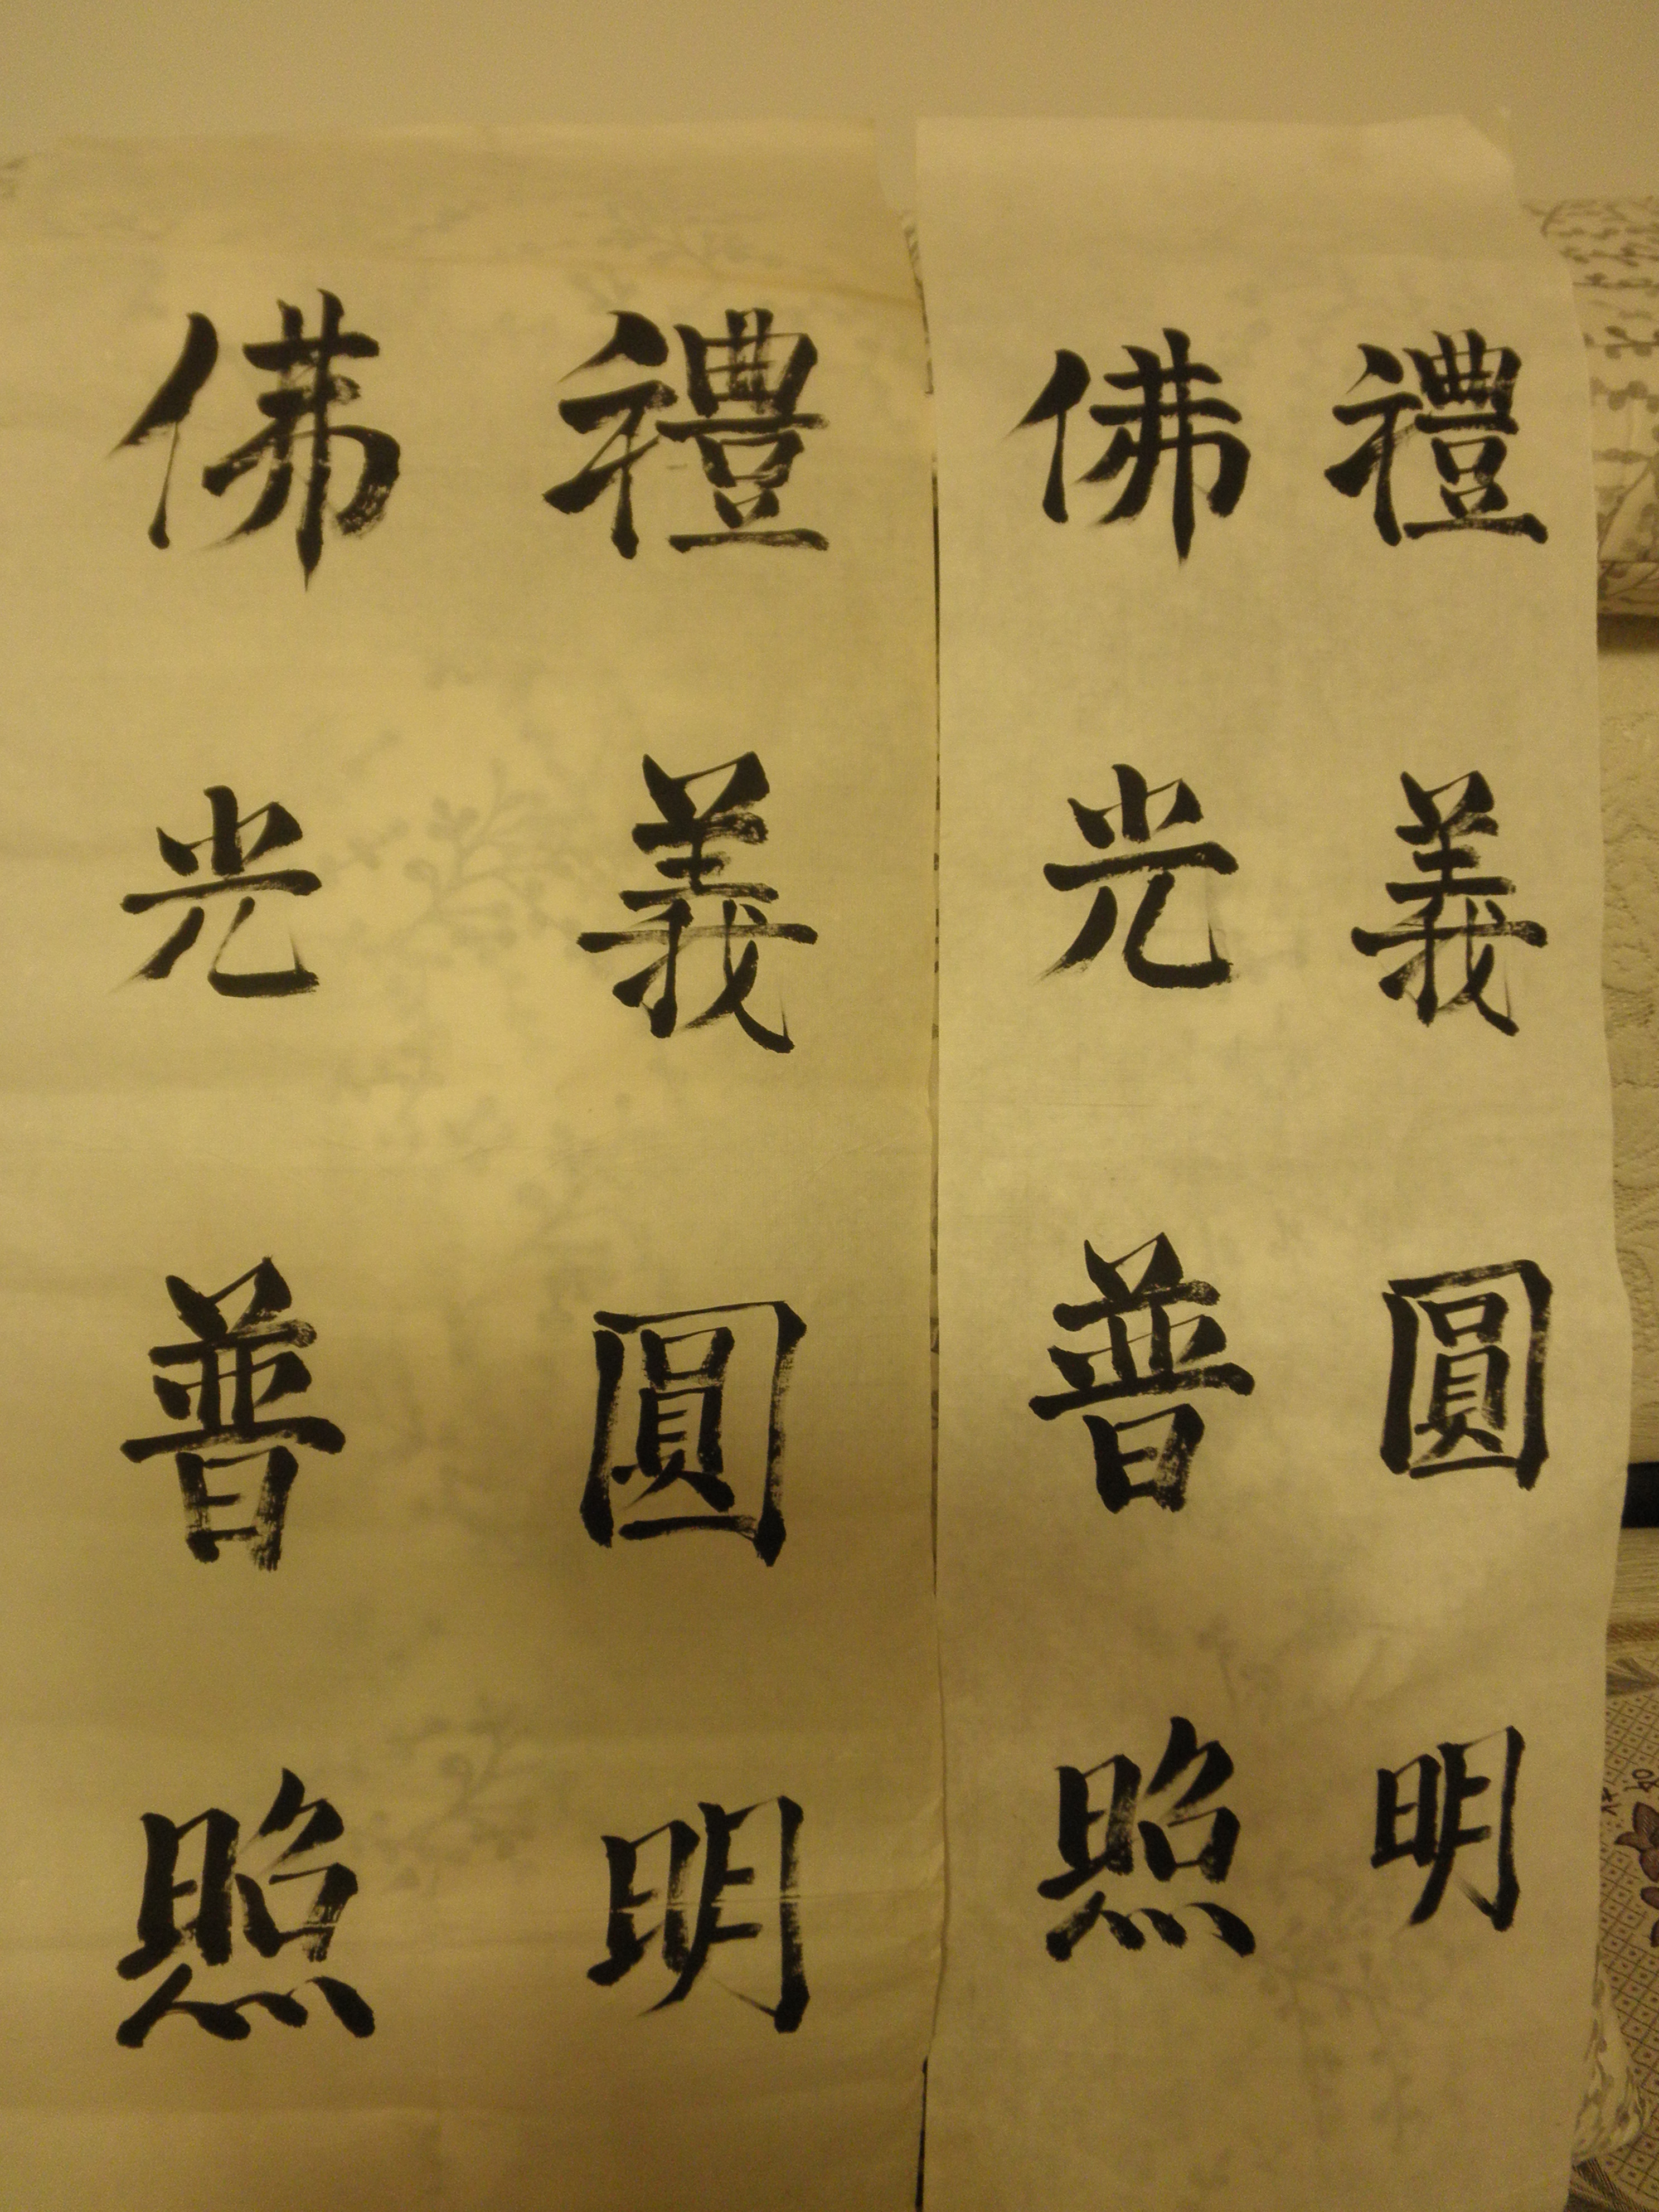 禮義圓明
佛光普照
禮義圓明
佛光普照